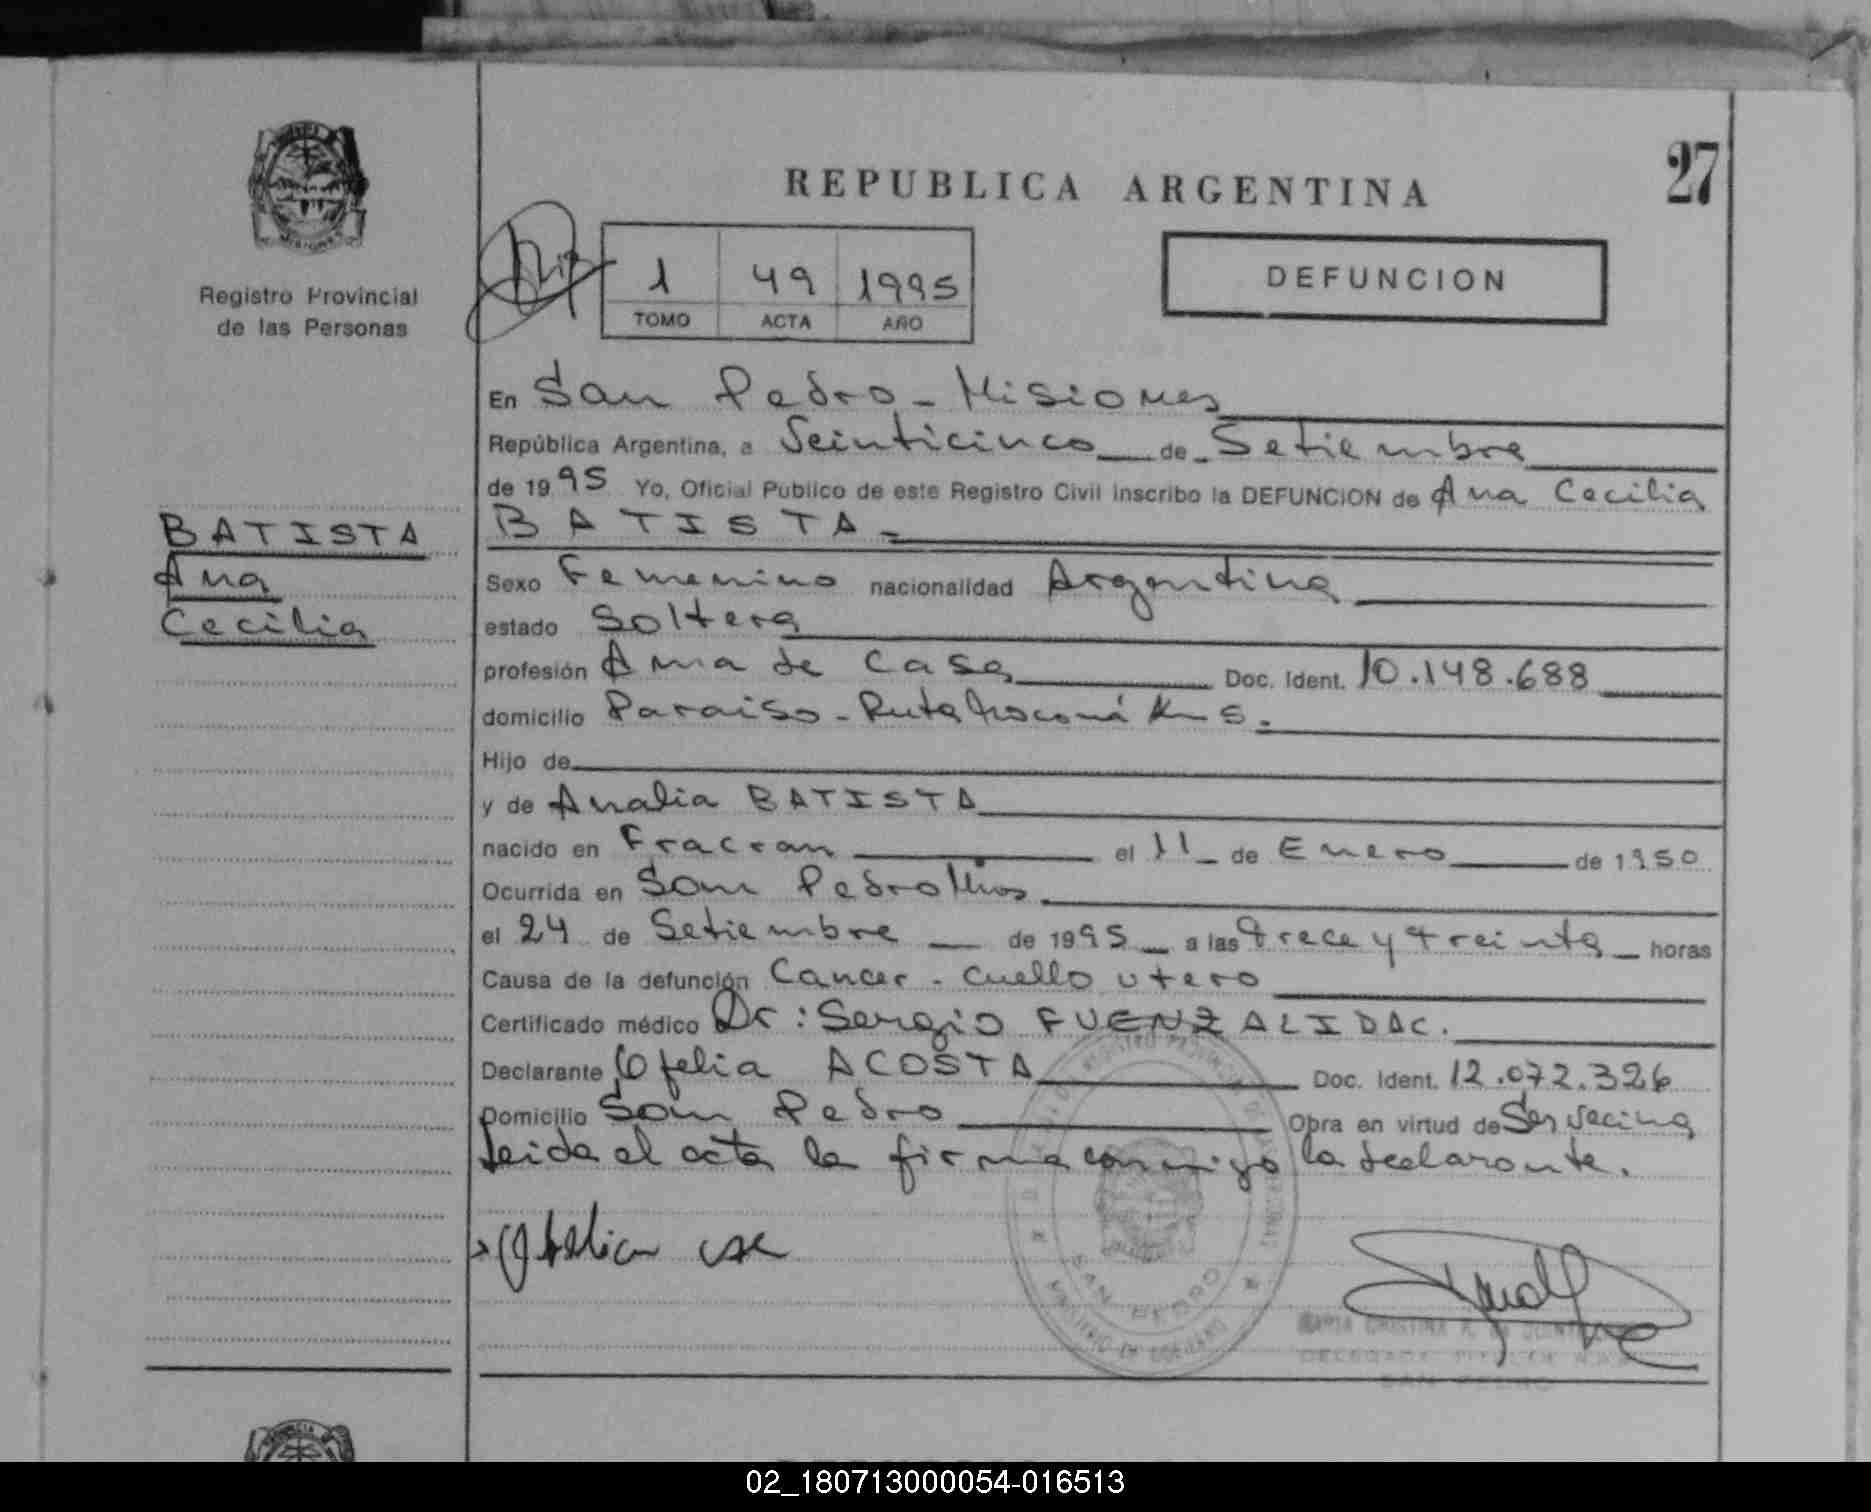 27
REPUBLICA ARGENTINA
Registro Provincial
de las Personas
1 49 1995
TOMO ACTA AÑO
DEFUNCION
BATISTA
Ana
Cecilia
En San Pedro - Misiones
República Argentina, a Veinticinco de Setiembre
de 1995 Yo, Oficial Público de este Registro Civil inscribo la DEFUNCION de Ana Cecilia
BATISTA
Sexo Femenino nacionalidad Argentina
estado Soltera
profesión Ama de Casa Doc. Ident. 10.148.688
domicilio Paraiso - Ruta Moconá Km 5.
Hijo de
y de Analia BATISTA
nacido en Fracran el 11 de Enero de 1950
Ocurrida en San Pedro Mnes
el 24 de Setiembre de 1995 a las trece y treinta horas
Causa de la defunción Cancer - Cuello utero
Certificado médico Dr: Sergio FUENZALIDA C.
Declarante Ofelia ACOSTA Doc. Ident. 12.072.326
Domicilio San Pedro Obra en virtud de Ser vecina
Leida el acta la firma conmigo la declarante.
SAN PEDRO
MINISTERIO DE GOBIERNO
SAN PEDRO
02_180713000054-016513